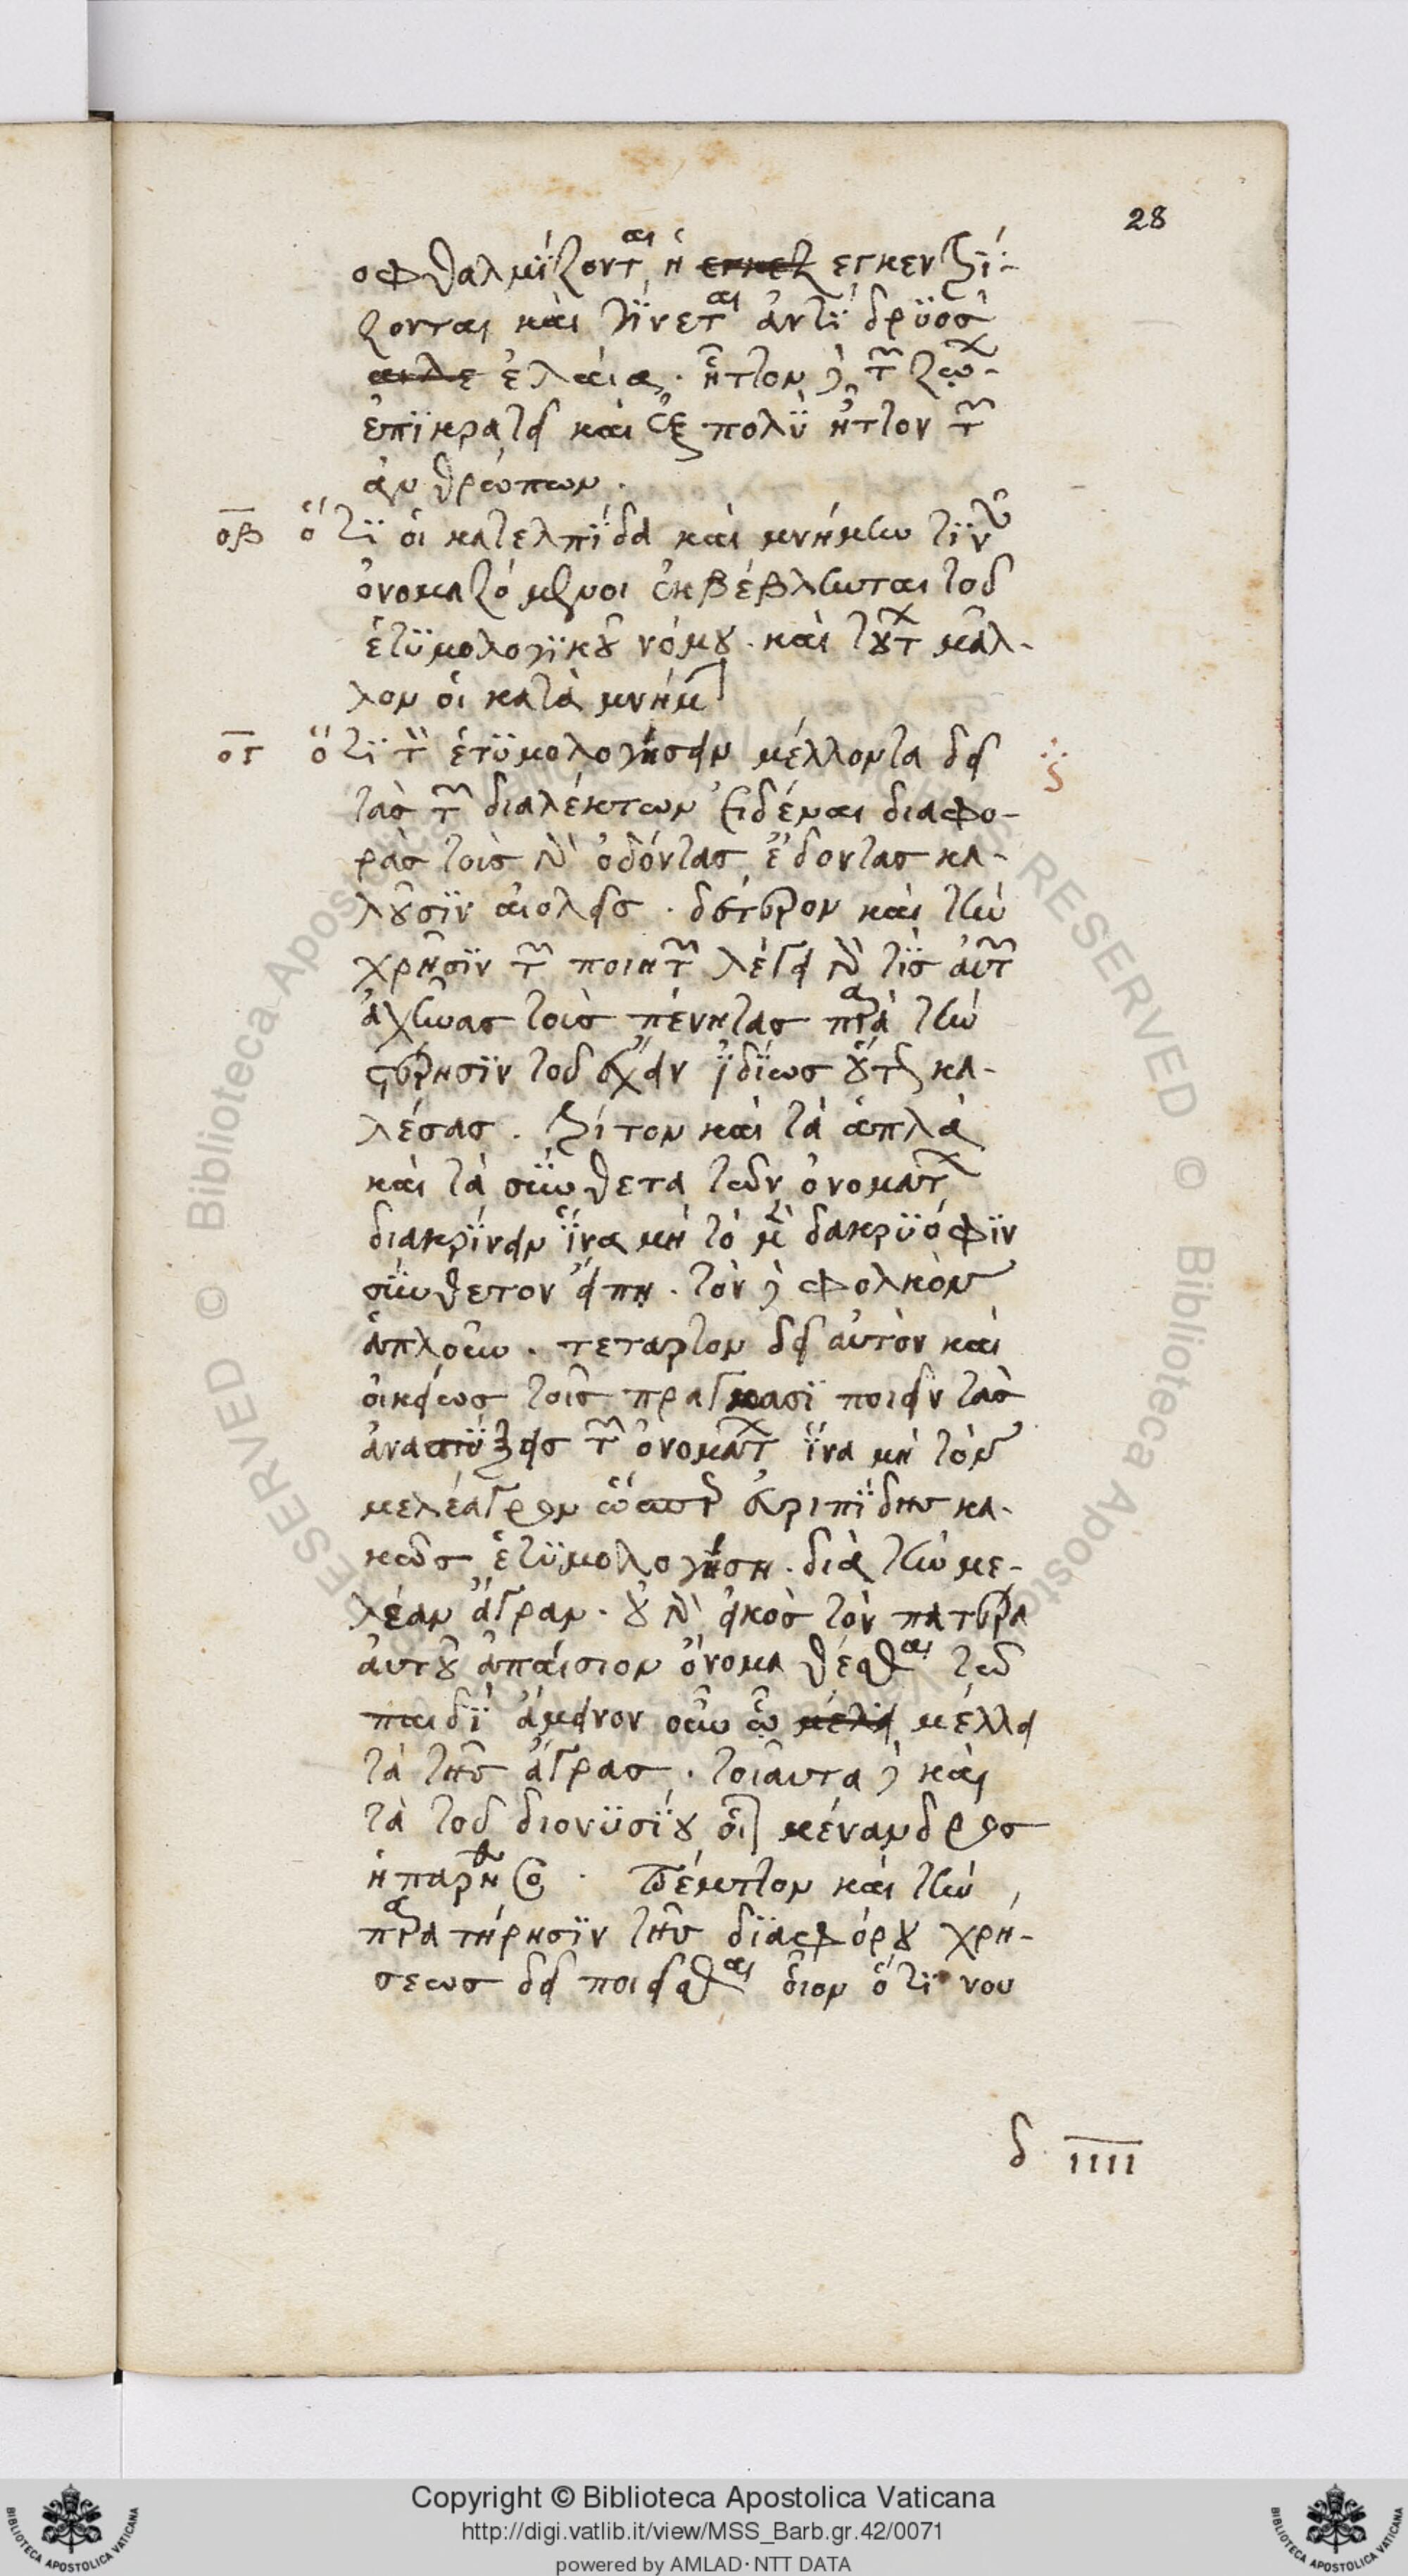 28
οφθαλμίζονται ἢ εγκεντρί-
ζονται καὶ γίνεται ἀντὶ δρυὸς
ἐλαία. ἧττον δὲ τῶν ζώων
ἐπικρατεῖ καὶ ἐξ πολὺ ἧττον τῶν
ἀνθρώπων.
οβ ὅτι οἱ κατελπίδα καὶ μνήμην τινῶν
ὀνομαζόμενοι ἐκβέβληνται τοῦ
ἐτυμολογικοῦ νόμου. καὶ τούτων μᾶλ-
λον οἱ κατὰ μνήμην
ογ ὅτι τὸν ἐτυμολογήσειν μέλλοντα δεῖ
τὰς τῶν διαλέκτων εἰδέναι διαφο-
ρὰς τοὺς γὰρ ὀδόντας ἔδοντας κα-
λοῦσιν αἰολεῖς. δεύτερον καὶ τὴν
χρῆσιν τῶν ποιητῶν λέγει γὰρ τὶς αὐτῶν
ἀχῆνας τοὺς πένητας παρὰ τὴν
στέρησιν τοῦ ἔχειν ἰδίως οὕτως κα-
λέσας. τρίτον καὶ τὰ ἁπλᾶ
καὶ τὰ σύνθετα τῶν ὀνομάτων
διακρίνειν ἵνα μὴ τὸ μὲν δακρυόφιν
σύνθετον εἴπῃ. τὸν δὲ φολκὸν
ἁπλοῦν. τέταρτον δεῖ αὐτὸν καὶ
οἰκείως τοῖς πράγμασι ποιεῖν τὰς
ἀναπτύξεις τῶν ὀνομάτων ἵνα μὴ τὸν
μελέαγρον ὥσπερ εὐριπίδης κα-
κῶς ἐτυμολογήσῃ. διὰ τὴν με-
λέαν ἄγραν. οὐ γὰρ εἰκὸς τὸν πατέρα
αὐτοῦ ἀπαίσιον ὄνομα θέσθαι τῷ
παιδὶ ἄμεινον οὖν ᾧ μέλει μέλλει
τὰ τῆς ἄγρας. τοιαῦτα δὲ καὶ
τὰ τοῦ διονυσίου ὅτι μένανδρος
ἡ παρθένος. πέμπτον καὶ τὴν
παρατήρησιν τῆς διαφόρου χρή-
σεως δεῖ ποιεῖσθαι οἷον ὅτι νου
δ. ΙΙΙΙ
Copyright © Biblioteca Apostolica Vaticana
http://digi.vatlib.it/view/MSS_Barb.gr.42/0071
powered by AMLAD·NTT DATA